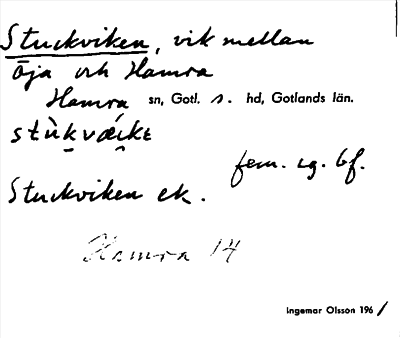 Stuckviken, vik mellan
Öja och Hamra
Hamra sn, Gotl. s. hd, Gotlands län.
stùkvǽikɛ
fem. sg. bf.
Stuckviken ek.
Hamra 14
Ingemar Olsson 1961